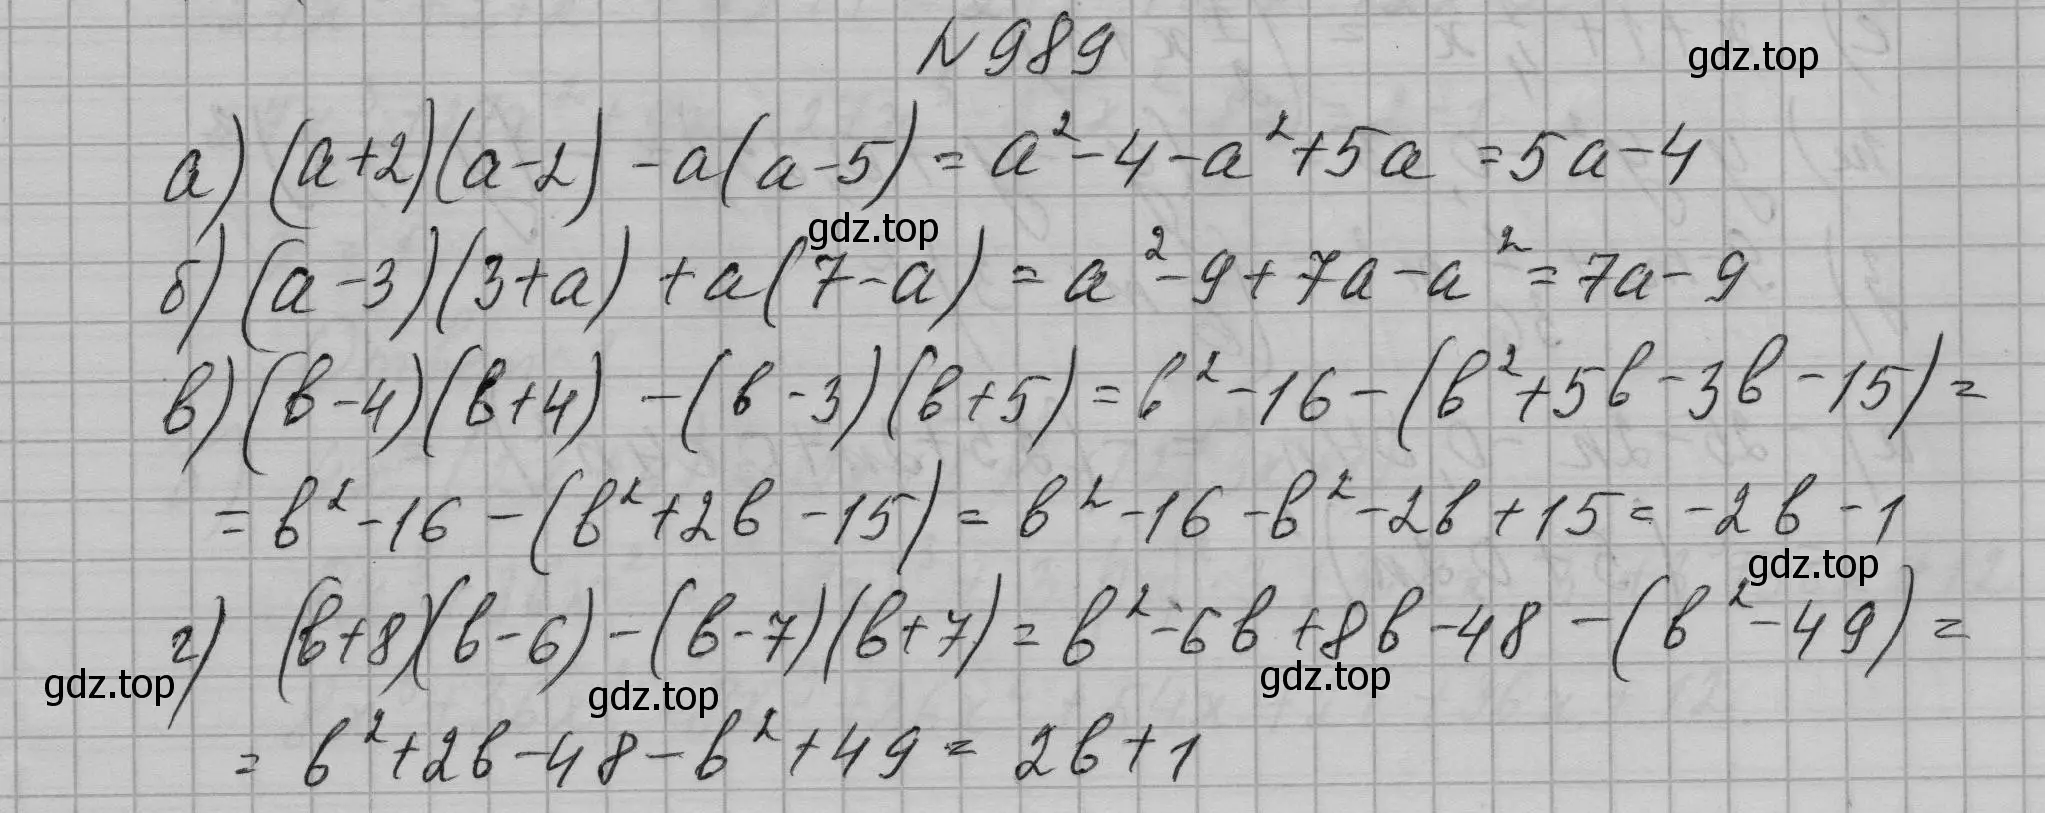 N989
gdz.top
а) (a+2)(a-2) - a(a-5) = a² - 4 - a² + 5a = 5a - 4
gdz.top
б) (a-3)(3+a) + a(7-a) = a² - 9 + 7a - a² = 7a - 9
в) (b-4)(b+4) - (b-3)(b+5) = b² - 16 - (b² + 5b - 3b - 15) =
= b² - 16 - (b² + 2b - 15) = b² - 16 - b² - 2b + 15 = -2b - 1
gdz.top
г) (b+8)(b-6) - (b-7)(b+7) = b² - 6b + 8b - 48 - (b² - 49) =
gdz.top
gdz.top
gdz.top
= b² + 2b - 48 - b² + 49 = 2b + 1